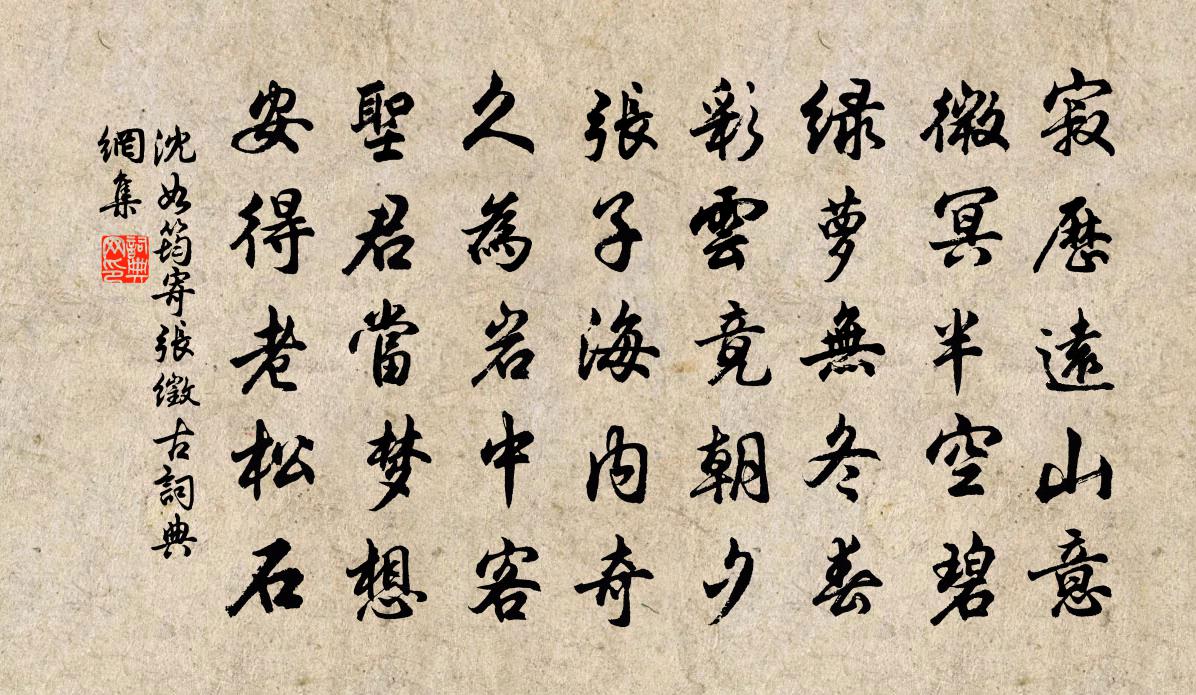 寂歷遠山意
微冥半空碧
绿萝無冬春
彩雲竟朝夕
張子海内奇
久為岩中客
聖君當梦想
安得老松石
沈如筠寄張徵古詞典
網集
詞典
网印